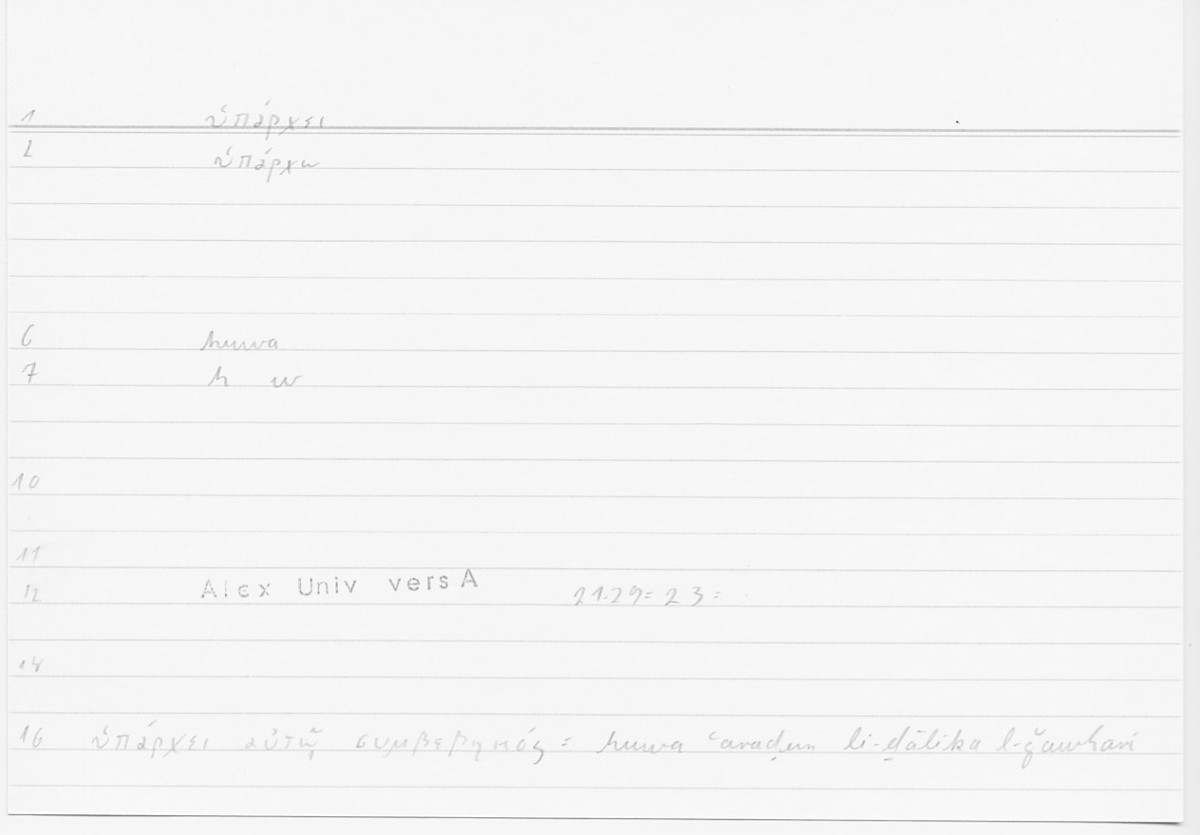 1 ὑπάρχει
2 ὑπάρχω
6 huwa
7 h w
10
11
12 Alex Univ vers A 21.29= 23=
14
16 ὑπάρχει αὐτῷ συμβεβηκός = huwa ʿaraḍun li-ḏālika l-ǧawhari